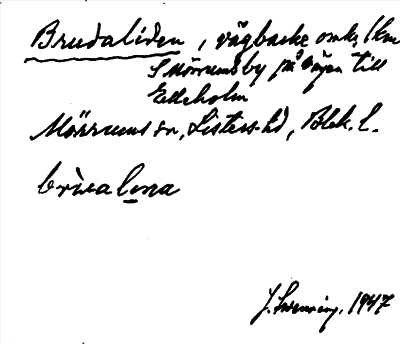 Brudaliden, vägbacke omkr. 1 km
S Mörrums by på vägen till
Elleholm
Mörrums sn, Listers hd, Blek. l.
brùalena
J. Swenning. 1947